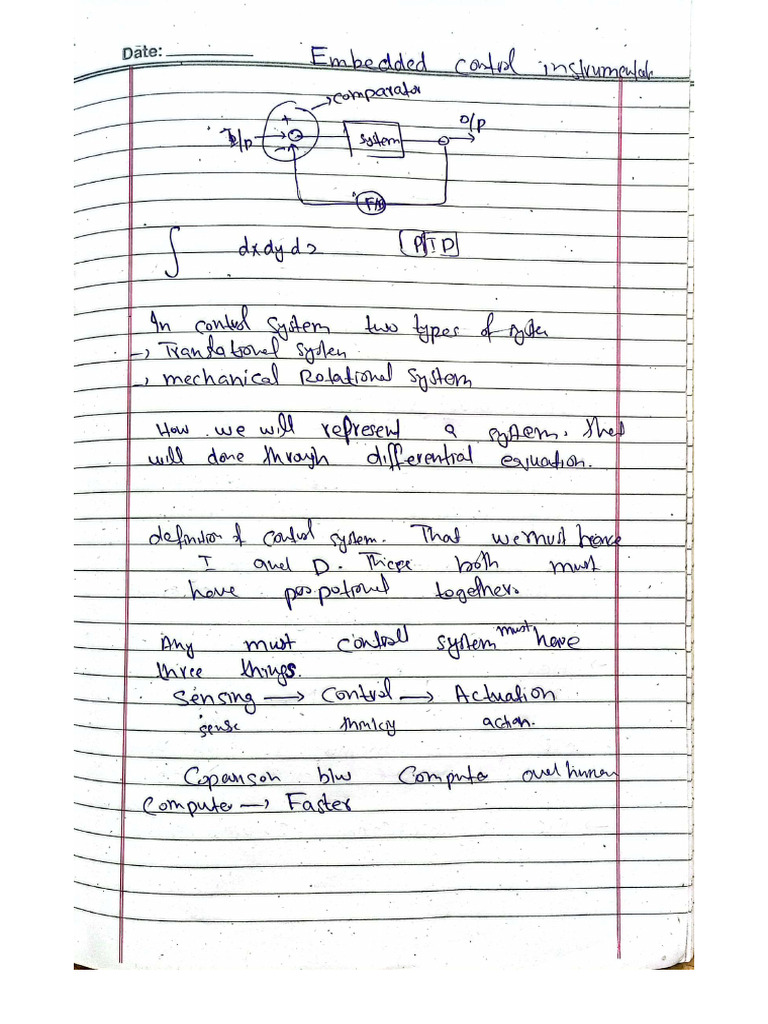 Date:
Embedded control instrumentat
comparator
+
I/p
-
System
O/p
F/B
∫ dxdydz
P I D
In control system two types of syste
→ Translational system
→ mechanical Rotational system
How we will represent a system. that
will done through differential equation.
definition of control system. That we must
I and D. both must
have together.
Any must controll system must have
three things.
Sensing → Control → Actuation
sense action.
Copanson b/w Compute and human
Compute → Faster